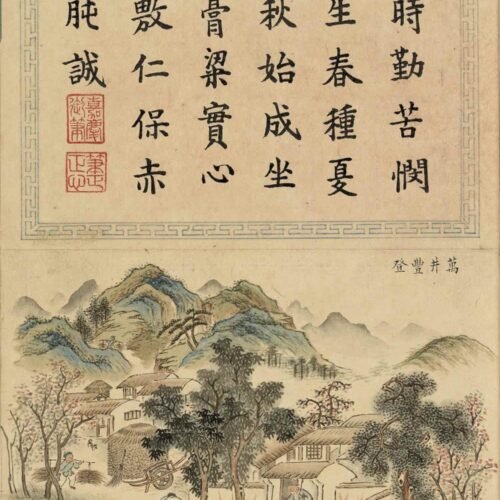 時勤苦憫
生春種夏
秋始成坐
膏粱實心
敷仁保赤
肫誠
嘉慶御筆
萬井豐登